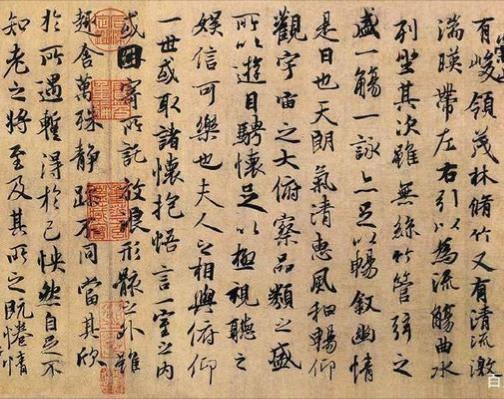 有峻領茂林脩竹又有清流激
湍暎帶左右引以為流觴曲水
列坐其次雖無絲竹管弦之
盛一觴一詠亦足以暢敘幽情
是日也天朗氣清惠風和暢仰
觀宇宙之大俯察品類之盛
所以遊目騁懷足以極視聽之
娛信可樂也夫人之相與俯仰
一世或取諸懷抱悟言一室之內
或因寄所託放浪形骸之外雖
趣舍萬殊靜躁不同當其欣
於所遇暫得於己怏然自足不
知老之將至及其所之既惓情
白